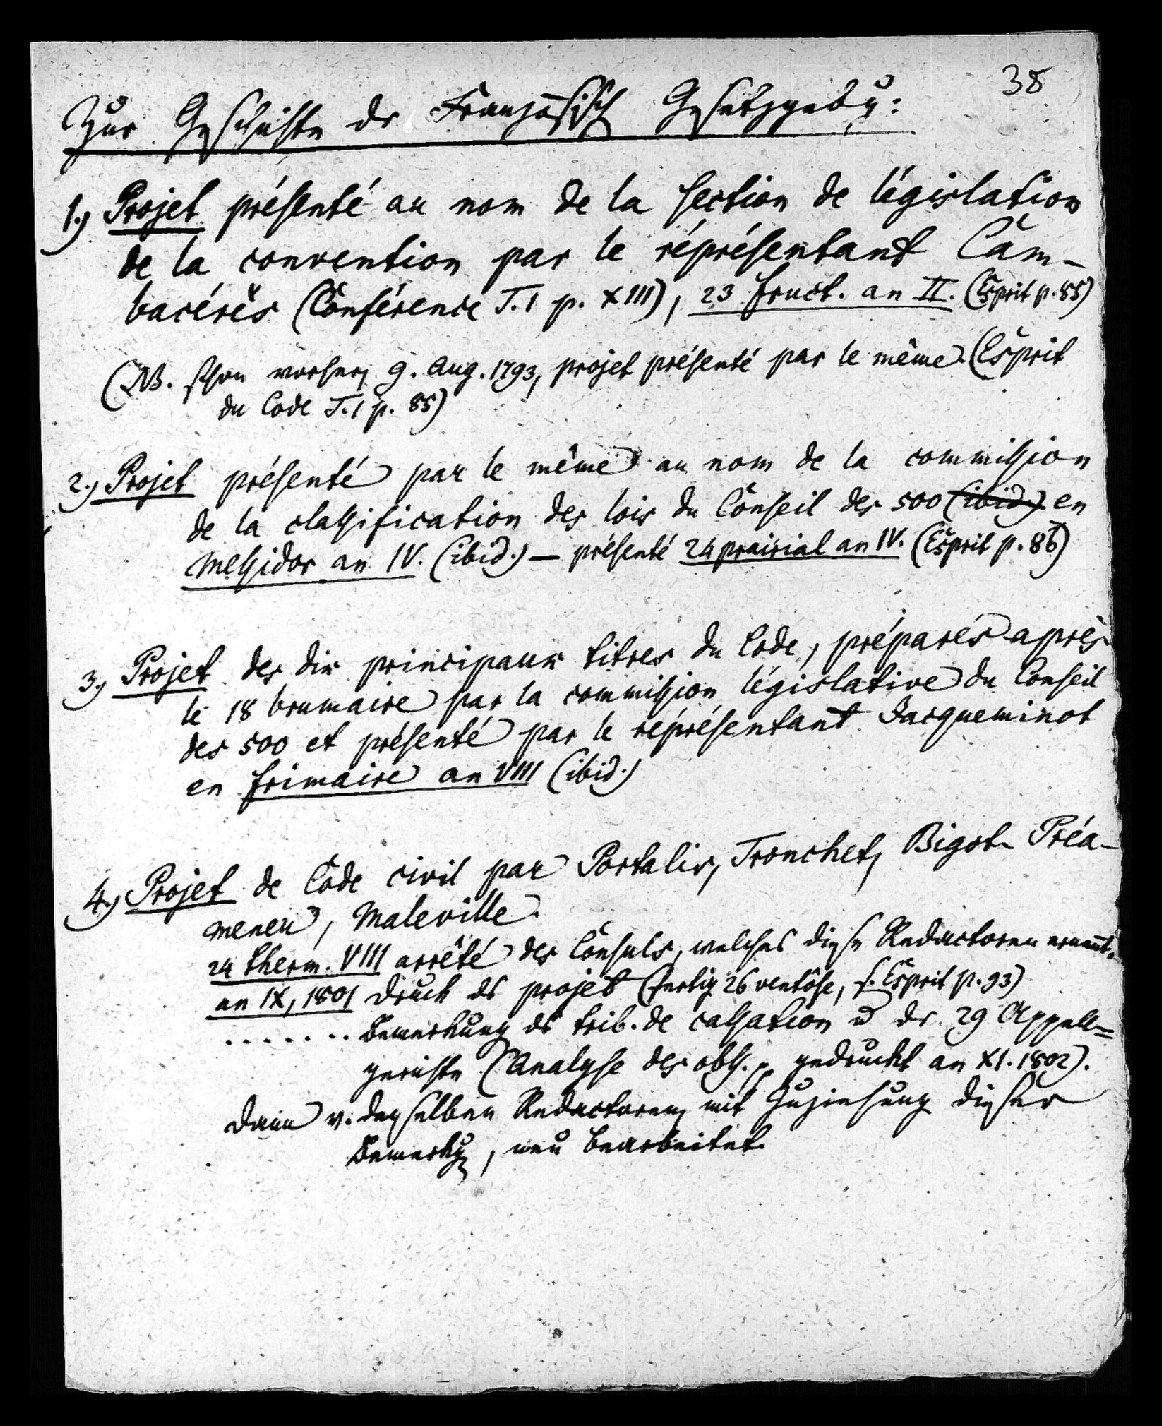 38
Zur Geschichte der Französisch Gesetzgebung:
1.) Projet présenté au nom de la section de législation
de la convention par le réprésentant Cam-
bacérès (Conférence T. I p. XIII), 23 fruct. an II. (Esprit p. 85)
(NB. schon vorher, 9. Aug. 1793, projet présenté par le même (Esprit
du Code T. I p. 85)
2.) Projet présenté par le même au nom de la commission
de la classification des lois du Conseil des 500 (ibid.) en
Messidor an IV. (ibid.) — présenté 24 prairial an IV. (Esprit p. 86)
3.) Projet des dix principaux titres du Code, préparés après
le 18 brumaire par la commission législative du Conseil
des 500 et présenté par le réprésentant Jacqueminot
en frimaire an VIII (ibid.)
4.) Projet de Code civil par Portalis, Tronchet, Bigot-Préa-
meneu, Maleville
24 therm. VIII arrêté des Consuls, welches diese Redactoren ernannt.
an IX, 1801 Druck des projet (fertig 26 ventôse, s. Esprit p. 93)
. . . . . . . Bemerkung des trib. de cassation u der 29 Appell=
gerichte (Analyse des obss. gedruckt an XI. 1802).
Dann v. denselben Redactoren, mit Zuziehung dieser
Bemerkg, neu bearbeitet